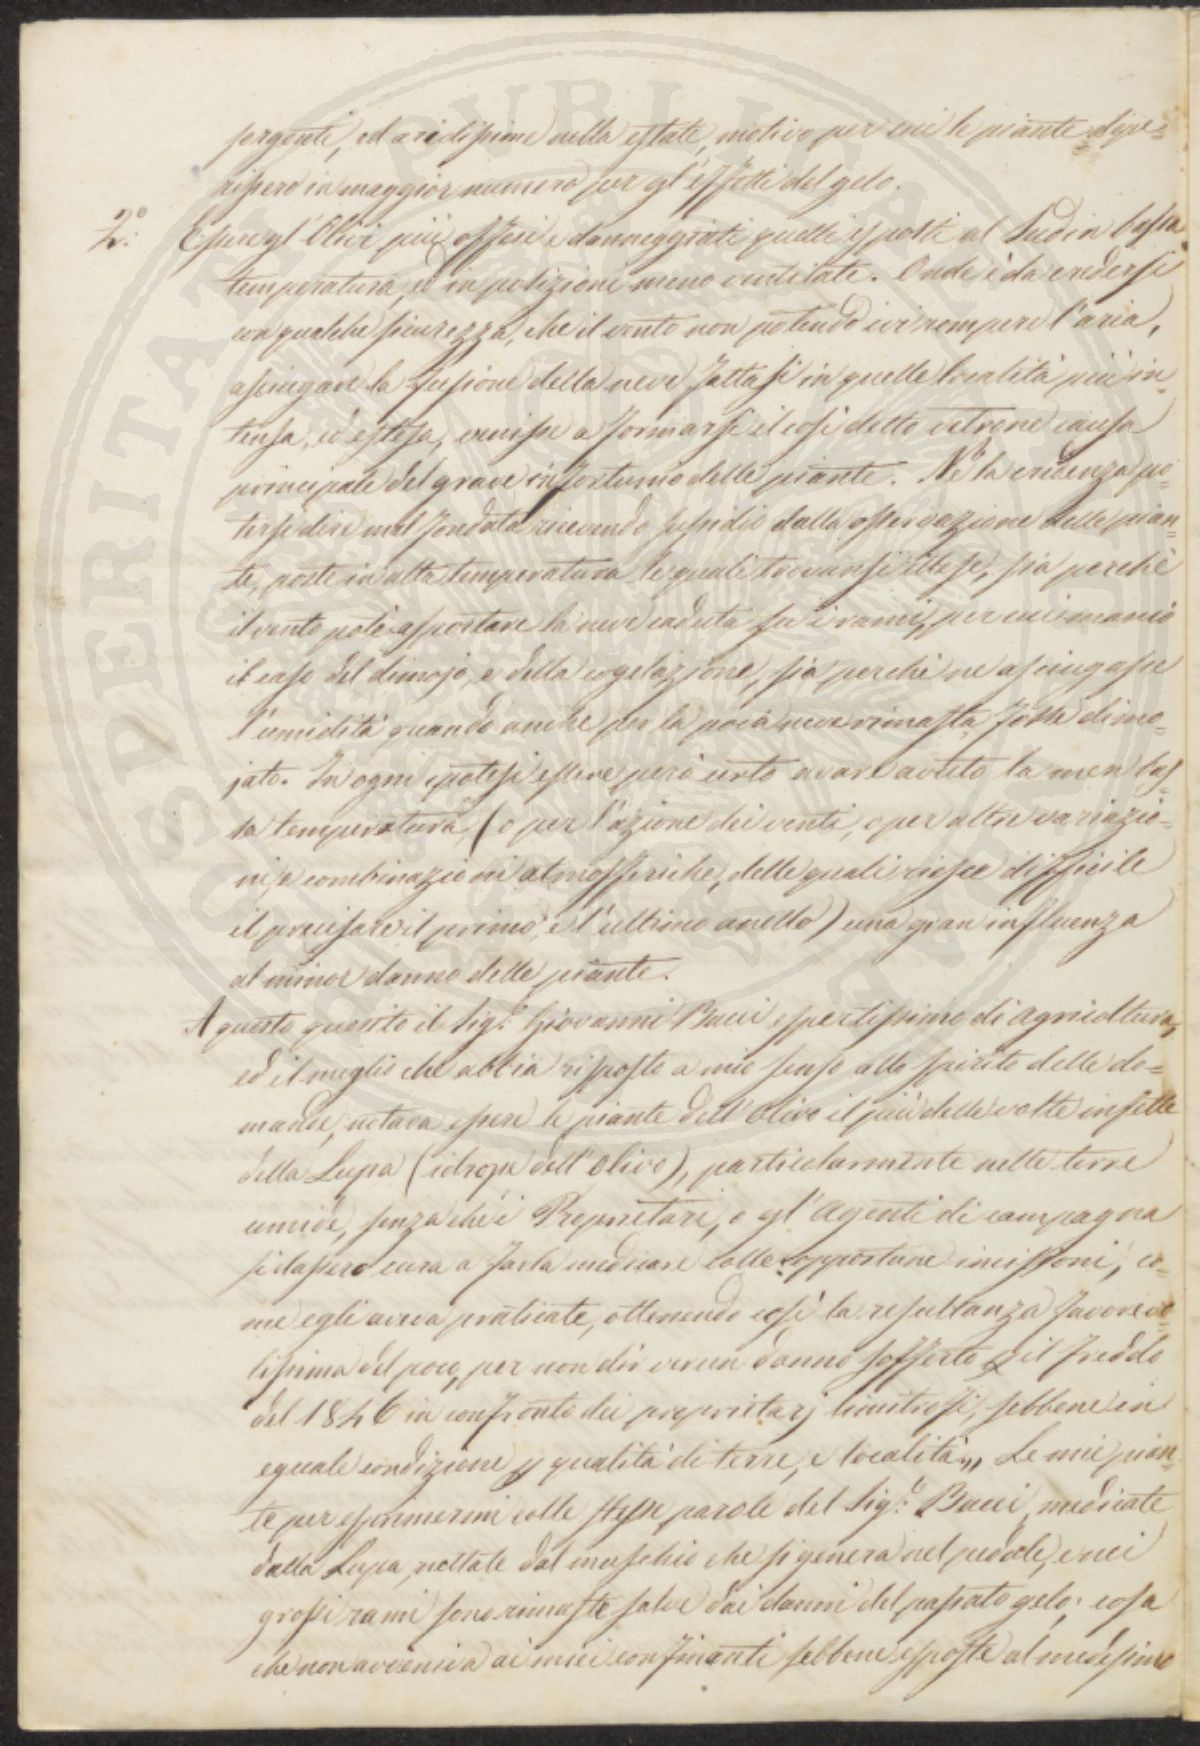 sorgenti, ed aridissime nella estate, motivo per cui le piante depe=
rissero in maggior numero per gl'effetti del gelo.
2.° Essere gl'Olivi più offesi e danneggiati quelli esposti al Sud in bassa
temperatura, ed in posizioni meno ventilate. Onde è da credersi
con qualche sicurezza, che il vento non potendo ivi rompere l'aria,
asciugare la fusione della neve fattasi in quelle località più in=
tensa, ed estesa, venisse a formarsi il così detto vetrone causa
principale del grave infortunio delle piante. Nè la credenza po=
tersi dire mal fondata ricevendo sussidio dalla osservazione delle pian=
te, poste in alta temperatura le quali trovansi illese, sia perchè
il vento potè asportare la neve caduta su i rami, per cui mancò
il caso del dimojo, e della congelazione, sia perchè ne asciugasse
l'umidità quando anche per la poca neve rimasta fosse dimo=
jato. In ogni ipotesi essere però certo avare avuto la men bas=
sa temperatura, (o per l'azione dei venti, o per altre variazio=
ni e combinazioni atmosferiche, delle quali riesce difficile
il precisare il primo, e l'ultimo anello) una gran influenza
al minor danno delle piante.
A questo quesito il Sig.r Giovanni Bucci espertissimo di agricoltura,
ed il meglio che abbia risposto a mio senso allo spirito delle do=
mande, notava essere le piante dell'Olivo il più delle volte infette
della Lupa (idrope dell'Olivo), particolarmente nelle terre
umide, senza che i Proprietari, o gl'Agenti di campagna
si dassero cura a farla medicare colle opportune incisioni, co=
me egli aveva praticate, ottenendo così la resultanza favorevo=
lissima del poco, per non dir verun danno sofferto p il freddo
del 1846 in confronto dei proprietarj limitrofi, sebbene in
eguale condizione p qualità di terre, e località „ Le mie pian=
te per esprimermi colle stesse parole del Sig.r Bucci, medicate
dalla Lupa, nettate dal muschio che si genera nel pedale, e nei
grossi rami sono rimaste salve dai danni del passato gelo; cosa
che non avveniva ai miei confinanti sebbene esposte al medesimo